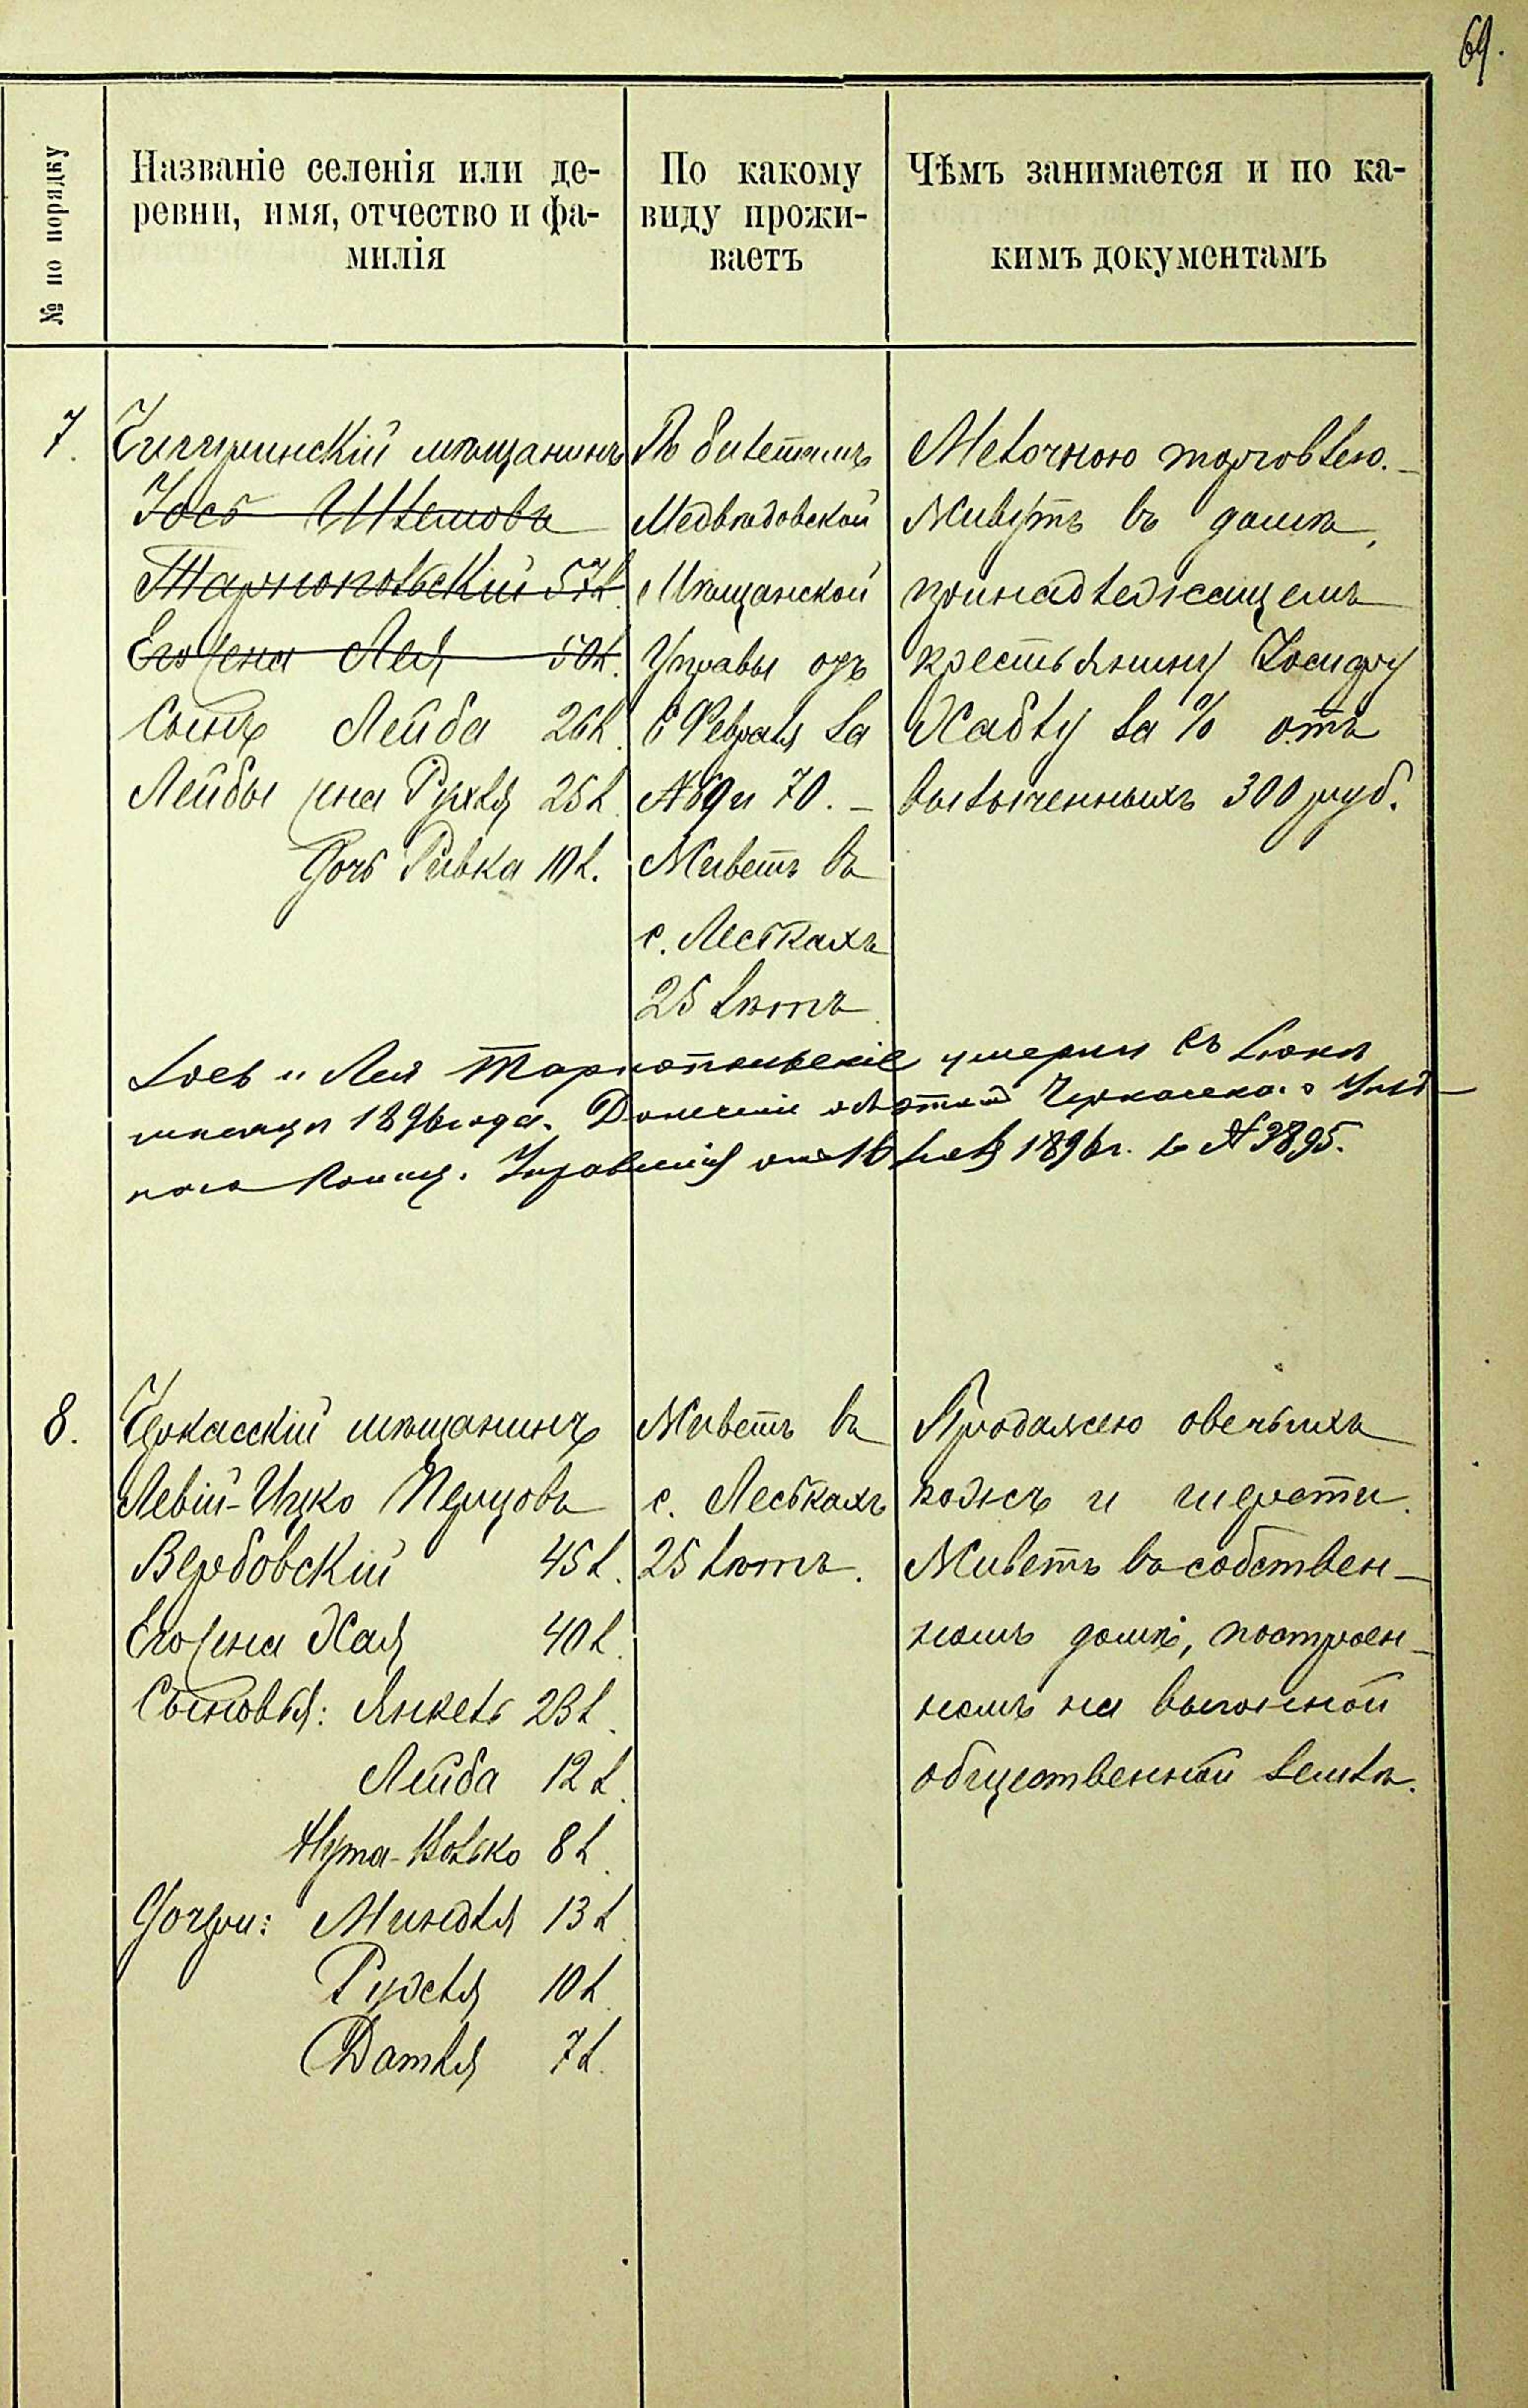 69.
№ по порядку
Названіе селенія или де-
ревни, имя, отчество и фа-
милія
По какому
виду прожи-
ваетъ
Чѣмъ занимается и по ка-
кимъ документамъ
7.
Чигиринскій мѣщанинъ
Іось Шлемовъ
Тарнопольскій 57 л.
Его жена Лея 50 л.
Сынъ Лейба 26 л.
Лейбы жена Рухля 25 л.
Дочь Ривка 10 л.
По билетамъ
Медвѣдовской
Мѣщанской
Управы отъ
6 Февраля за
№ 69 и 70. –
Живетъ въ
с. Леськахъ
25 лѣтъ
Мелочною торговлею. –
Живутъ въ домѣ,
принадлежащемъ
крестьянину Іосифу
Жаблу за % отъ
вылыченныхъ 300 руб.
Іось и Лея Тарнопольскіе умерли въ Іюнѣ
мѣсяцѣ 1896 года. Донесеніе объ этомъ Черкасскаго Уѣзд-
наго Полиц. Управленія отъ 16 1896 г. за № 3895.
8.
Черкасскій мѣщанинъ
Левій-Ицко Перцовъ
Вербовскій 45 л.
Его жена Хая 40 л.
Сыновья: Янкель 23 л.
Лейба 12 л.
Нута-Волько 8 л.
Дочери: Миндля 13 л.
Рухля 10 л.
7 л.
Живетъ въ
с. Леськахъ
25 лѣтъ.
Продажею овечьихъ
кожъ и шерсти.
Живетъ въ собствен-
номъ домѣ, построен-
номъ на выгонной
общественной землѣ.